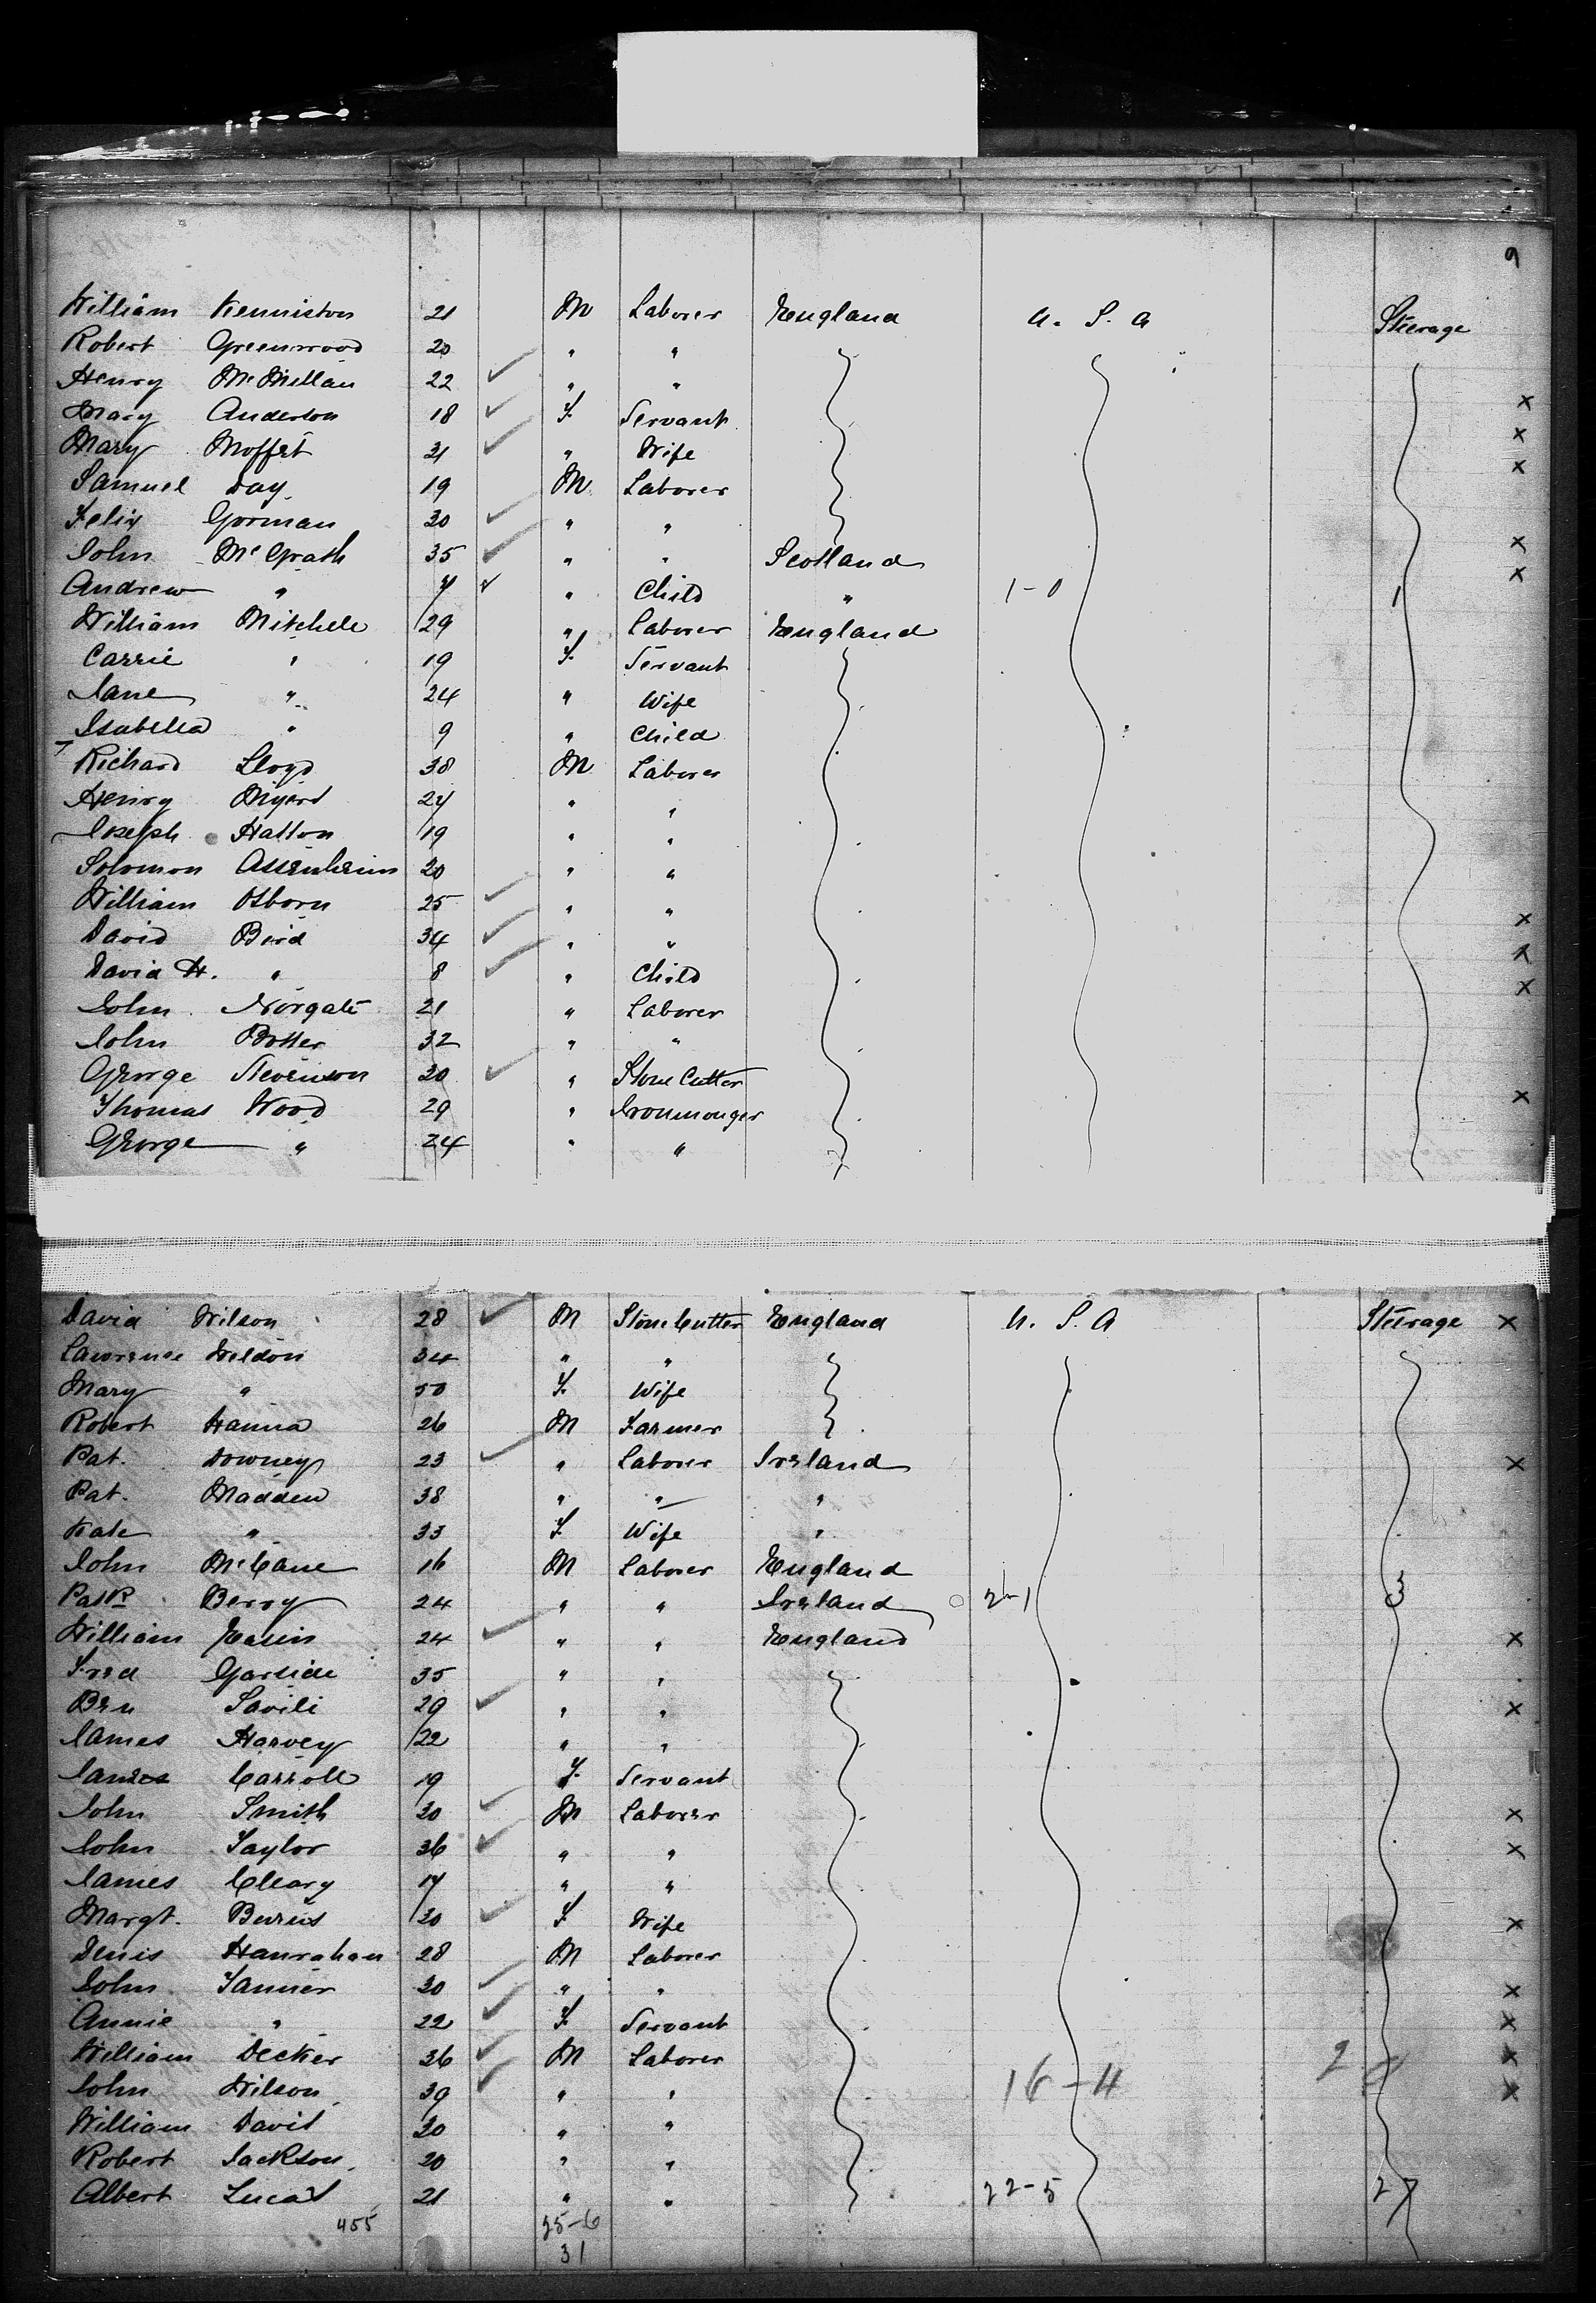 9
William Kenniston 21 M Laborer England U. S. A Steerage
Robert Greenwood 20 " "
Henry McMillan 22 ✓ " "
Mary Anderson 18 ✓ F. Servant x
Mary Moffet 21 ✓ " Wife x
Samuel Day 19 M. Laborer x
Felix Gorman 30 ✓ " "
John McGrath 35 ✓ " " Scotland x
Andrew " 7 ✓ " Child " 1-0 1 x
William Mitchele 29 " Laborer England
Carrie " 19 F. Servant
Jane " 24 " Wife
Isabella " 9 " Child
Richard Lloyd 38 M Laborer
Henry 24 " "
Joseph Hatton 19 " "
Solomon Assenheim 20 " "
William Osborn 25 ✓ " "
David Bird 34 ✓ " " x
David H. " 8 ✓ " Child x
John Norgate 21 " Laborer x
John Potter 32 " "
George Stevenson 20 ✓ " Stone Cutter
Thomas Wood 29 " Ironmonger x
George " 24 " "
David Wilson 28 ✓ M Stone Cutter England U. S. A Steerage x
Lawrence Weldon 34 " "
Mary " 50 F. Wife
Robert Hanna 26 M Farmer
Pat. Downey 23 ✓ " Laborer Ireland x
Pat. Madden 38 " " "
Kate " 33 F. Wife "
John McCane 16 M Laborer England
Patk Berry 24 " " Ireland 2-1 3
William 24 ✓ " " England x
Fred Garside 35 " "
Ben Savile 29 ✓ " " x
James Harvey 22 " "
Carroll 19 F. Servant
John Smith 30 ✓ M Laborer x
John Taylor 36 ✓ " " x
James Cleary 17 " "
Margt. Burns 30 ✓ F Wife x
Denis Hanrahan 28 M Laborer
John Tanner 30 ✓ " " x
Annie " 22 ✓ F. Servant x
William Decker 36 ✓ M Laborer x
John Wilson 39 ✓ " " 16-4 x
William David 20 " "
Robert Jackson 20 " "
Albert Lucas 21 " " 22-5 27
455 25-6
31